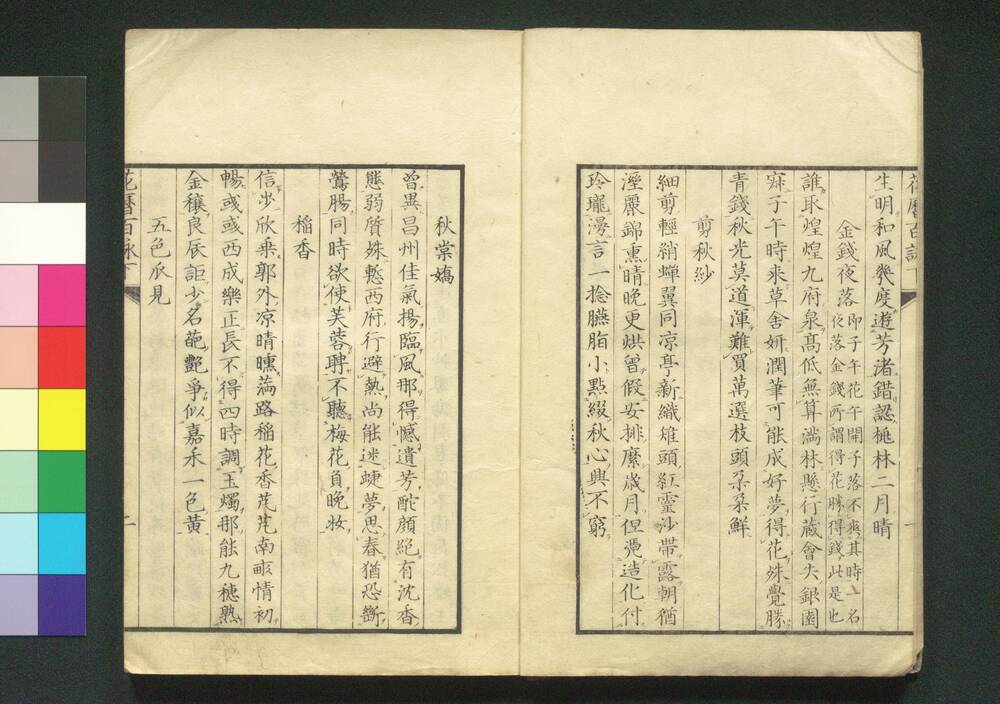 花曆百詠下
一
生明和風幾度遊芳渚錯認桃林二月晴
金錢夜落即子午花午開子落不爽其時一名
夜落金錢所謂得花勝得錢此是也
誰取煌煌九府泉高低無算滿林懸行藏會夫銀園
寐子午時來草舍妍潤筆可能成好夢得花殊覺勝
青錢秋光莫道渾難買萬選枝頭朵朵鮮
剪秋紗
細剪輕綃蟬翼同凉亭新織雉頭紅靈沙帶露朝猶
溼麗錦熏晴晚更烘曾假安排縻歲月但凭造化付
玲瓏漫言一捻臙脂小點綴秋心興不窮
秋棠嬌
曾異昌州佳氣揚臨風那得憾遺芳酡顔絕有沈香
態弱質殊慙西府行避熱尚能迷蜨夢思春猶恐斷
鶯腸同時欲使芙蓉聘不聽梅花負晚妝
稻香
信步欣乘郭外凉晴曛滿路稻花香芃芃南畝情初
暢彧彧西成樂正長不得四時調玉燭那能九穗熟
金穰良辰詎少名葩豔爭似嘉禾一色黄
五色爪見
花曆百詠下
二